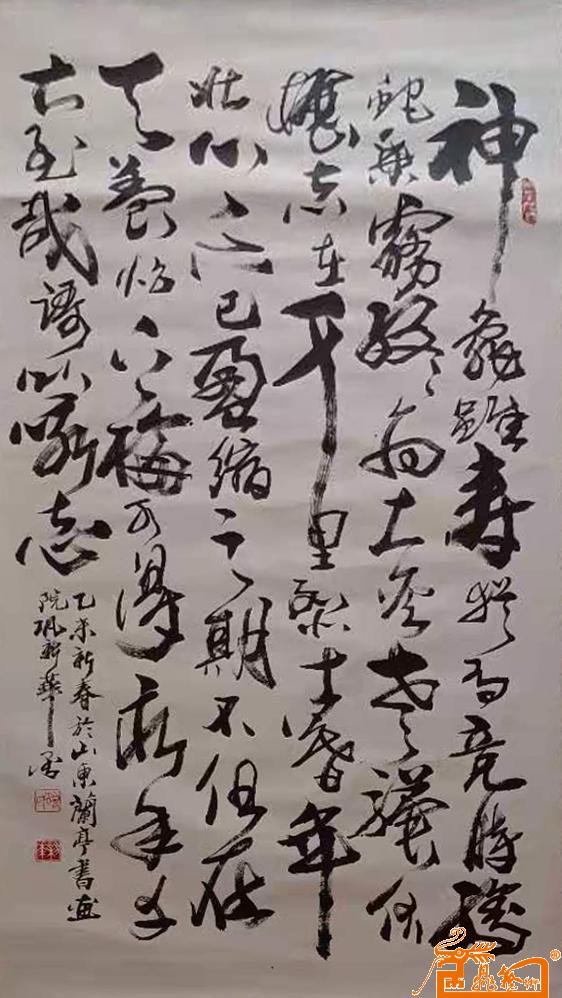 神龜雖壽猶有竟時騰
蛇乘霧終為土灰老驥伏
櫪志在千里烈士暮年
壮心不已盈縮之期不但在
天養怡之福可得永年幸
甚至哉歌以詠志
乙未新春於山東蘭亭書画
院巩新華書